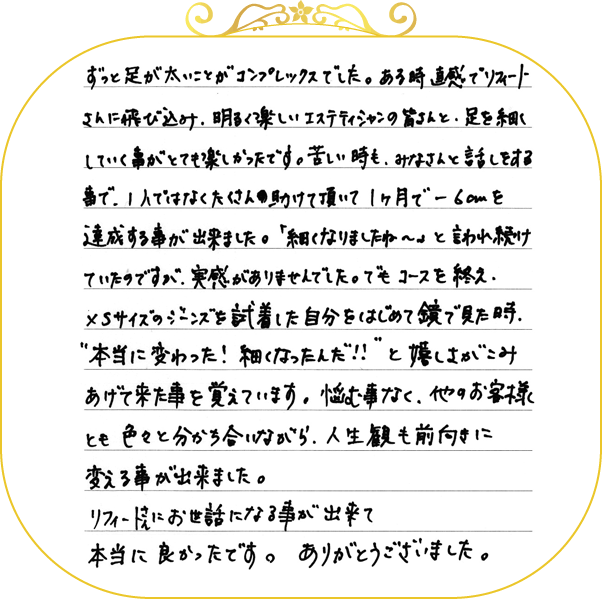 ずっと足が太いことがコンプレックスでした。ある時直感でリフィート
さんに飛び込み、明るく楽しいエステティシャンの皆さんと、足を細く
していく事がとても楽しかったです。苦しい時も、みなさんと話しをする
事で、1人ではなくたくさん助けて頂いて1ヶ月で−6cmを
達成する事が出来ました。「細くなりましたね〜」と言われ続け
ていたのですが、実感がありませんでした。でもコースを終え、
XSサイズのジーンズを試着した自分をはじめて鏡で見た時、
"本当に変わった!細くなったんだ!!"と嬉しさがこみ
あげて来た事を覚えています。悩む事なく、他のお客様
とも色々と分かち合いながら、人生観も前向きに
変える事が出来ました。
リフィートさんにお世話になる事が出来て
本当に良かったです。ありがとうございました。